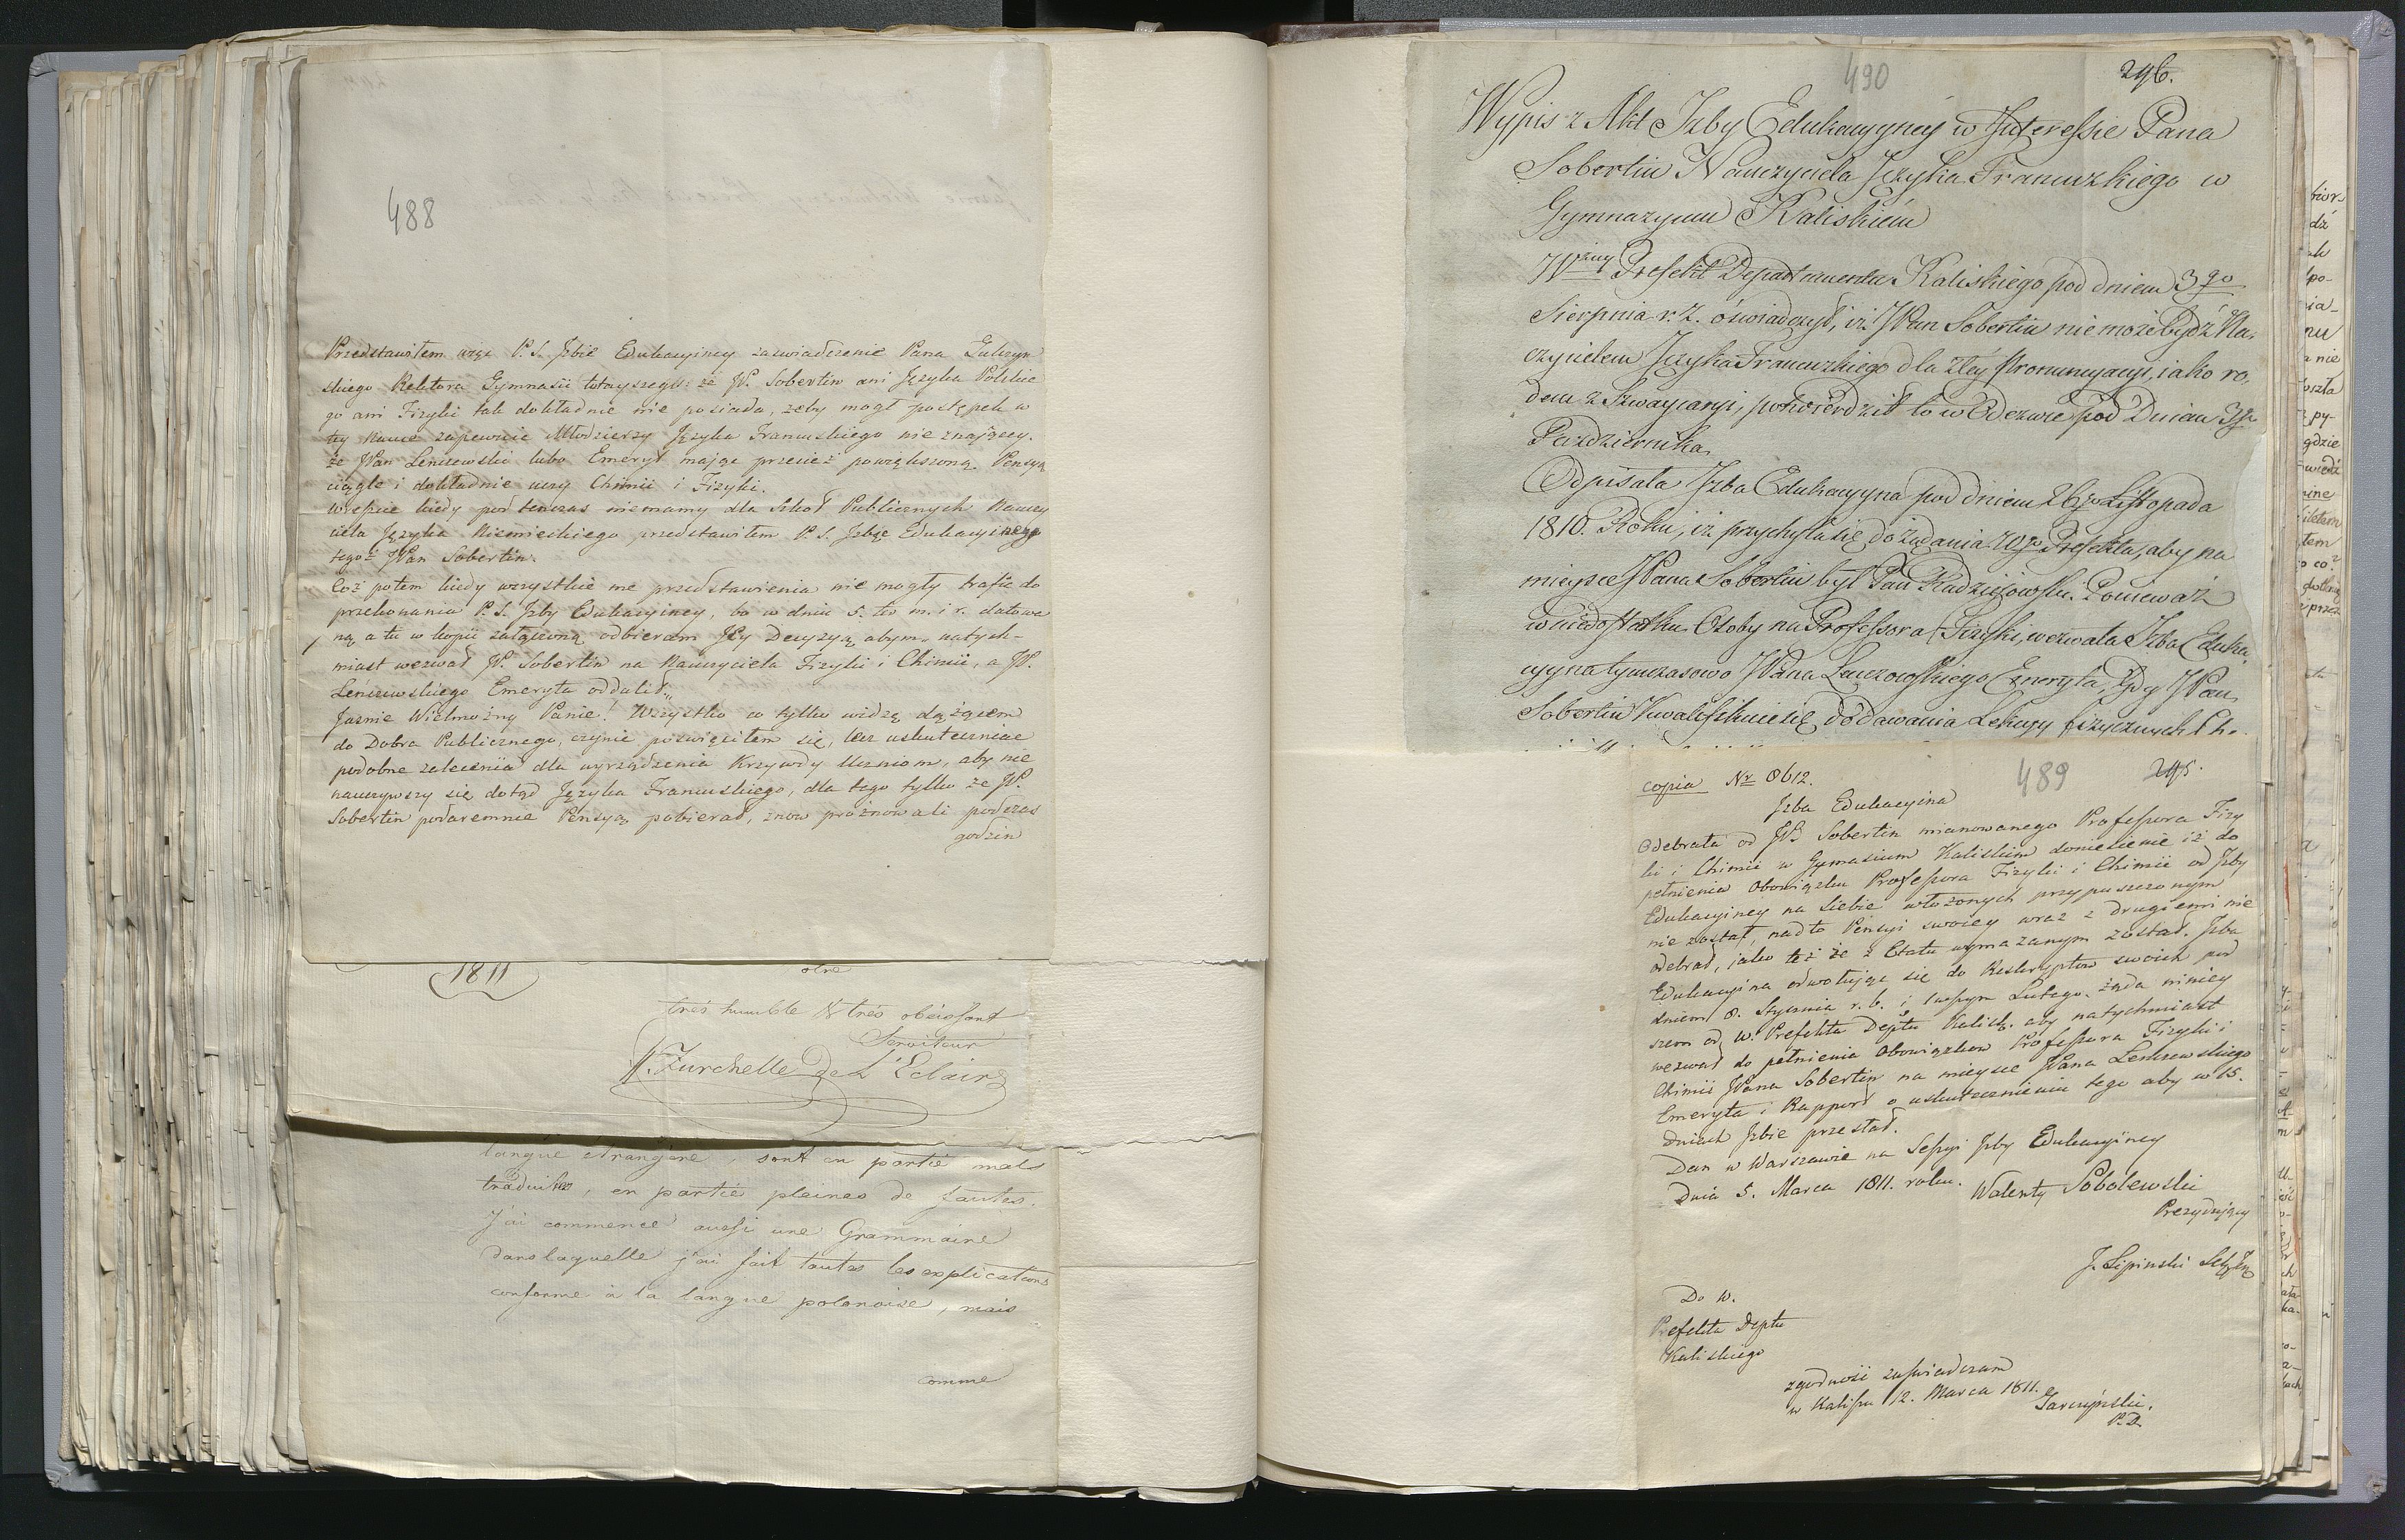 488
Przedstawiłem więc P. S. Izbie Edukacyiney zaświadczenie Pana Gulczyn
skiego Rektora Gymnasii tutayszego: że JP. Sobertin ani Języka Polskie
go ani Fizyki tak dokładnie nie posiada, żeby mógł postępek w
tey nauce zapewnić Młodzieży Języka Francuskiego nie znaiącey.
że JPan Lenczewski lubo Emeryt maiąc przecież powiększoną Pensyą
ciągle i dokładnie uczy Chimii i Fizyki.
wręście kiedy podtenczas niemamy dla Szkół Publicznych Nauczy
ciela Języka Niemieckiego, przedstawiłem P. S. Izbie Edukacyiney
tegoż JPan Sobertin.
Coż potem kiedy wszystkie me przedstawienia nie mogły trafić do
przekonania P. S. Izby Edukacyiney, bo w dniu 5. tio m. i r. datowa
ną a tu w kopii załączoną odbieram Jey Decyzyą, abym natych-
miast wezwał JP. Sobertin na Nauczyciela Fizyki i Chimii, a JP.
Lenczewskiego Emeryta oddalił.
Jaśnie Wielmożny Panie! Wszystko co tylko widzę dążącem
do Dobra Publicznego, czynić poświęciłem się, lecz uskuteczniać
podobne zalecenia dla wyrządzenia Krzywdy Uczniom, aby nie
nauczywszy się dotąd Języka Francuskiego, dla tego tylko że JP.
Sobertin podaremnie Pensyą pobierał, znow próżnowali podczas
godzin
1811
otre
très humble & très obéissant
Serviteur
Furchelle De L'Eclair
langue étrangère, sont en partie mals
traduites, en partie pleines de fautes.
J'ai commencé aussi une Grammaire
dans laquelle j'ai fait toutes les explications
conforme à la langue polonoise, mais
comme
490
296.
Wypis z Akt Izby Edukacyyney w Interessie Pana
Sobertin Nauczyciela Języka Francuzkiego w
Gymnazyum Kaliskiém
Prefekt Departamentu Kaliskiego pod dniem 3go
Sierpnia r. z. oświadczył, iż JPan Sobertin nie może bydź Na,
czycielem Języka Francuzkiego dla złey pronuncyacyi, iako ro,
dem z Szwaycaryi, potwierdził to w Odezwie pod Dniem
Października.
Odpisała Izba Edukacyyna pod dniem 26go Listopada
1810. Roku, iż przychyla się do żądania Prefekta, aby na
mieysce JPana Sobertin był Pan Radziejowski. Ponieważ
w niedostatku Osoby na Professora Fizyki, wezwała Izba Eduka,
cyyna tymczasowo JPana Lenczowskiego Emeryta, gdy JPan
Sobertin kwalifikuie się do dawania Lekcyy fizycznych Ch.
copia Nr 8612.
489
295.
Izba Edukacyina
Odebrała od JP. Sobertin mianowanego Professora Fizy
ki i Chimii w Gymnasium Kaliskim doniesienie iż do
pełnienia Obowiązku Professora Fizyki i Chimii od Izby
Edukacyiney na siebie włożonych przypuszczonym
nie został, nadto Pensyi swoiey wraz z drugiemi nie
odebrał, iako też że z Etatu wymazanym został. Izba
Edukacyina odwołuiąc się do Reskryptów swoich pod
dniem 8. Stycznia r. b. i Lutego, żąda niniey
szem od W. Prefekta Deptu Kalisk. aby natychmiast
wezwał do pełnienia Obowiązkow Professora Fizyki i
Chimii JPana Sobertin na mieysce JPana Lenczewskiego
Emeryta i Rapport o uskutecznieniu tego aby w 15.
dniach Izbie przesłał.
Dan w Warszawie na Sessyi Izby Edukacyiney
Dnia 5. Marca 1811. roku.
Walenty Sobolewski
Prezyduiący
J. Lipinski
Do W.
Prefekta Deptu
Kaliskiego
zgodność zaświadczam
w Kaliszu 12. Marca 1811.
Garczyński.
P. D.